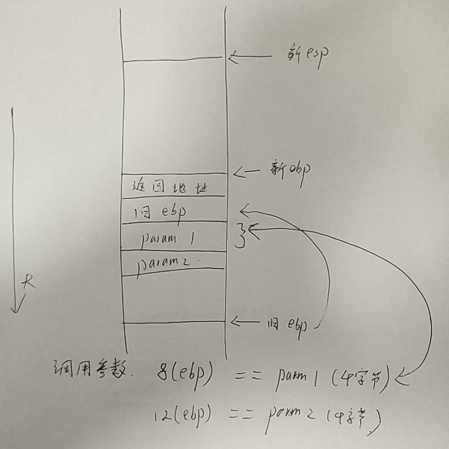 新esp
新ebp
返回地址
旧 ebp
param 1
param 2
旧 ebp
大
调用参数. 8(ebp) == param 1 (4字节)
12(ebp) == param 2 (4字节)